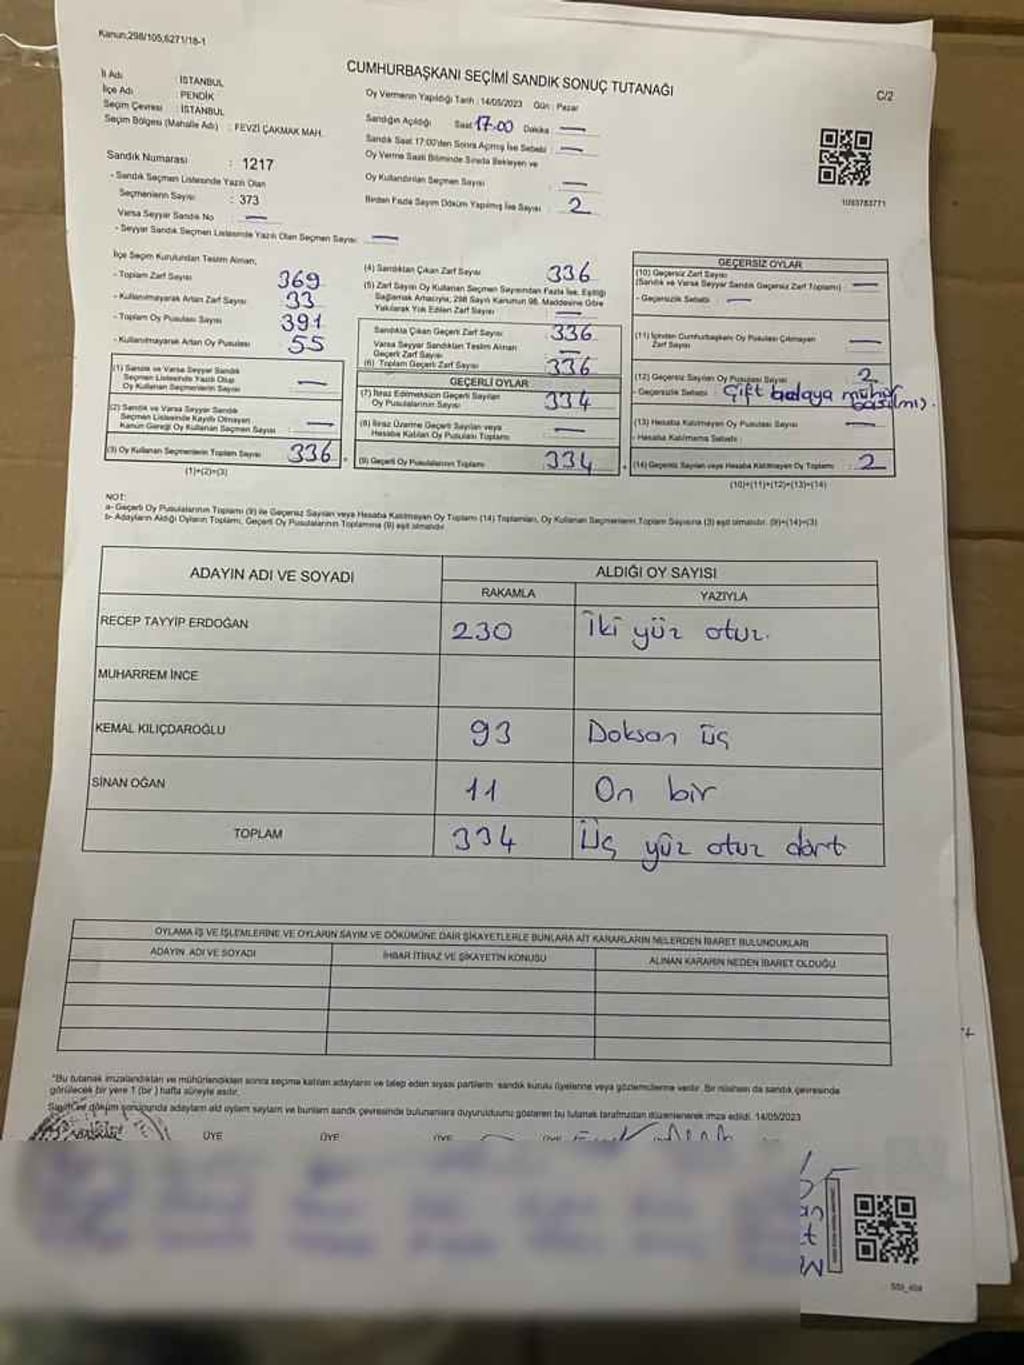 Kanun;298/105,6271/18-1
CUMHURBAŞKANI SEÇİMİ SANDIK SONUÇ TUTANAĞI
C/2
İl Adı : İSTANBUL
İlçe Adı : PENDİK
Seçim Çevresi : İSTANBUL
Seçim Bölgesi (Mahalle Adı) : FEVZİ ÇAKMAK MAH.
Sandık Numarası : 1217
- Sandık Seçmen Listesinde Yazılı Olan
Seçmenlerin Sayısı : 373
Varsa Seyyar Sandık No —
- Seyyar Sandık Seçmen Listesinde Yazılı Olan Seçmen Sayısı: —
Oy Vermenin Yapıldığı Tarih : 14/05/2023 Gün : Pazar
Sandığın Açıldığı Saat 17.00 Dakika —
Sandık Saat 17:00'den Sonra Açılmış İse Sebebi : —
Oy Verme Saati Bitiminde Sırada Bekleyen ve
Oy Kullandırılan Seçmen Sayısı —
Birden Fazla Sayım Döküm Yapılmış İse Sayısı : 2
İlçe Seçim Kurulundan Teslim Alınan;
- Toplam Zarf Sayısı 369
- Kullanılmayarak Artan Zarf Sayısı 33
- Toplam Oy Pusulası Sayısı 391
- Kullanılmayarak Artan Oy Pusulası 55
(1) Sandık ve Varsa Seyyar Sandık
Seçmen Listesinde Yazılı Olup
Oy Kullanan Seçmenlerin Sayısı : —
(2) Sandık ve Varsa Seyyar Sandık
Seçmen Listesinde Kayıtlı Olmayan
Kanun Gereği Oy Kullanan Seçmen Sayısı : —
(3) Oy Kullanan Seçmenlerin Toplam Sayısı : 336
(1)+(2)=(3)
(4) Sandıktan Çıkan Zarf Sayısı 336
(5) Zarf Sayısı Oy Kullanan Seçmen Sayısından Fazla İse, Eşitliği
Sağlamak Amacıyla, 298 Sayılı Kanunun 98. Maddesine Göre
Yakılarak Yok Edilen Zarf Sayısı : —
Sandıkta Çıkan Geçerli Zarf Sayısı 336
Varsa Seyyar Sandıktan Teslim Alınan
Geçerli Zarf Sayısı : —
(6) Toplam Geçerli Zarf Sayısı : 336
GEÇERLİ OYLAR
(7) İtiraz Edilmeksizin Geçerli Sayılan
Oy Pusulalarının Sayısı : 334
(8) İtiraz Üzerine Geçerli Sayılan veya
Hesaba Katılan Oy Pusulası Toplamı : —
(9) Geçerli Oy Pusulalarının Toplamı : 334
GEÇERSİZ OYLAR
(10) Geçersiz Zarf Sayısı
(Sandık ve Varsa Seyyar Sandık Geçersiz Zarf Toplamı) : —
- Geçersizlik Sebebi : —
(11) İçinden Cumhurbaşkanı Oy Pusulası Çıkmayan
Zarf Sayısı —
(12) Geçersiz Sayılan Oy Pusulası Sayısı : 2
- Geçersizlik Sebebi : Çift adaya mühür
basılmış.
(13) Hesaba Katılmayan Oy Pusulası Sayısı : —
- Hesaba Katılmama Sebebi :
(14) Geçersiz Sayılan veya Hesaba Katılmayan Oy Toplamı : 2
(10)+(11)+(12)+(13)=(14)
NOT:
a- Geçerli Oy Pusulalarının Toplamı (9) ile Geçersiz Sayılan veya Hesaba Katılmayan Oy Toplamı (14) Toplamları, Oy Kullanan Seçmenlerin Toplam Sayısına (3) eşit olmalıdır. (9)+(14)=(3)
b- Adayların Aldığı Oyların Toplamı, Geçerli Oy Pusulalarının Toplamına (9) eşit olmalıdır
ADAYIN ADI VE SOYADI
ALDIĞI OY SAYISI
RAKAMLA YAZIYLA
RECEP TAYYİP ERDOĞAN 230 İki yüz otuz.
MUHARREM İNCE
KEMAL KILIÇDAROĞLU 93 Doksan üç
SİNAN OĞAN 11 On bir
TOPLAM 334 Üç yüz otuz dört
OYLAMA İŞ VE İŞLEMLERİNE VE OYLARIN SAYIM VE DÖKÜMÜNE DAİR ŞİKAYETLERLE BUNLARA AİT KARARLARIN NELERDEN İBARET BULUNDUKLARI
ADAYIN ADI VE SOYADI İHBAR İTİRAZ VE ŞİKAYETİN KONUSU ALINAN KARARIN NEDEN İBARET OLDUĞU
*Bu tutanak imzalandıktan ve mühürlendikten sonra seçime katılan adayların ve talep eden siyasi partilerin sandık kurulu üyelerine veya gözlemcilerine verilir. Bir nüshası da sandık çevresinde
görülecek bir yere 1 (bir) hafta süreyle asılır.
döküm sonucunda adayların oyların ve bunların sandık çevresinde bulunanlara duyurulduğunu gösteren bu tutanak tarafımızdan düzenlenerek imza edildi. 14/05/2023
BAŞKAN ÜYE ÜYE ÜYE ÜYE